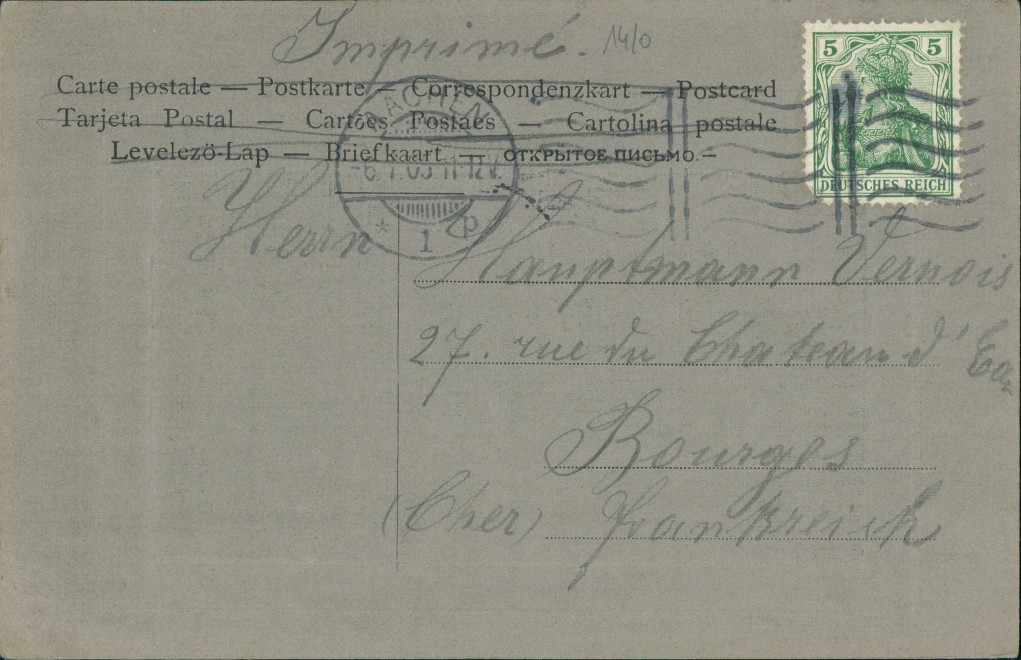 Imprimé. 14/0
Carte postale — Postkarte — Correspondenzkart — Postcard
Tarjeta Postal — Cartões Postaes — Cartolina postale
Levelező-Lap — Briefkaart — открытое письмо —
5 5
DEUTSCHES REICH
AACHEN
11-12 V.
* 1 p
Herrn Hauptmann Vernois
27. rue du Chateau d'Eau
Bourges
(Cher) Frankreich